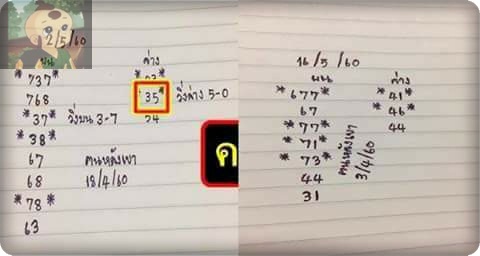 2/5/60
บน
ล่าง
*737*
768
*35*
วิ่งล่าง 5-0
*37*
วิ่งบน 3-7
*38*
67
คนหลังเขา
68
18/4/60
*78*
63
ค
16/5/60
บน
ล่าง
*677*
*41*
67
*46*
*77*
44
*71*
*73*
44
31
คนหลังเขา
3/4/60